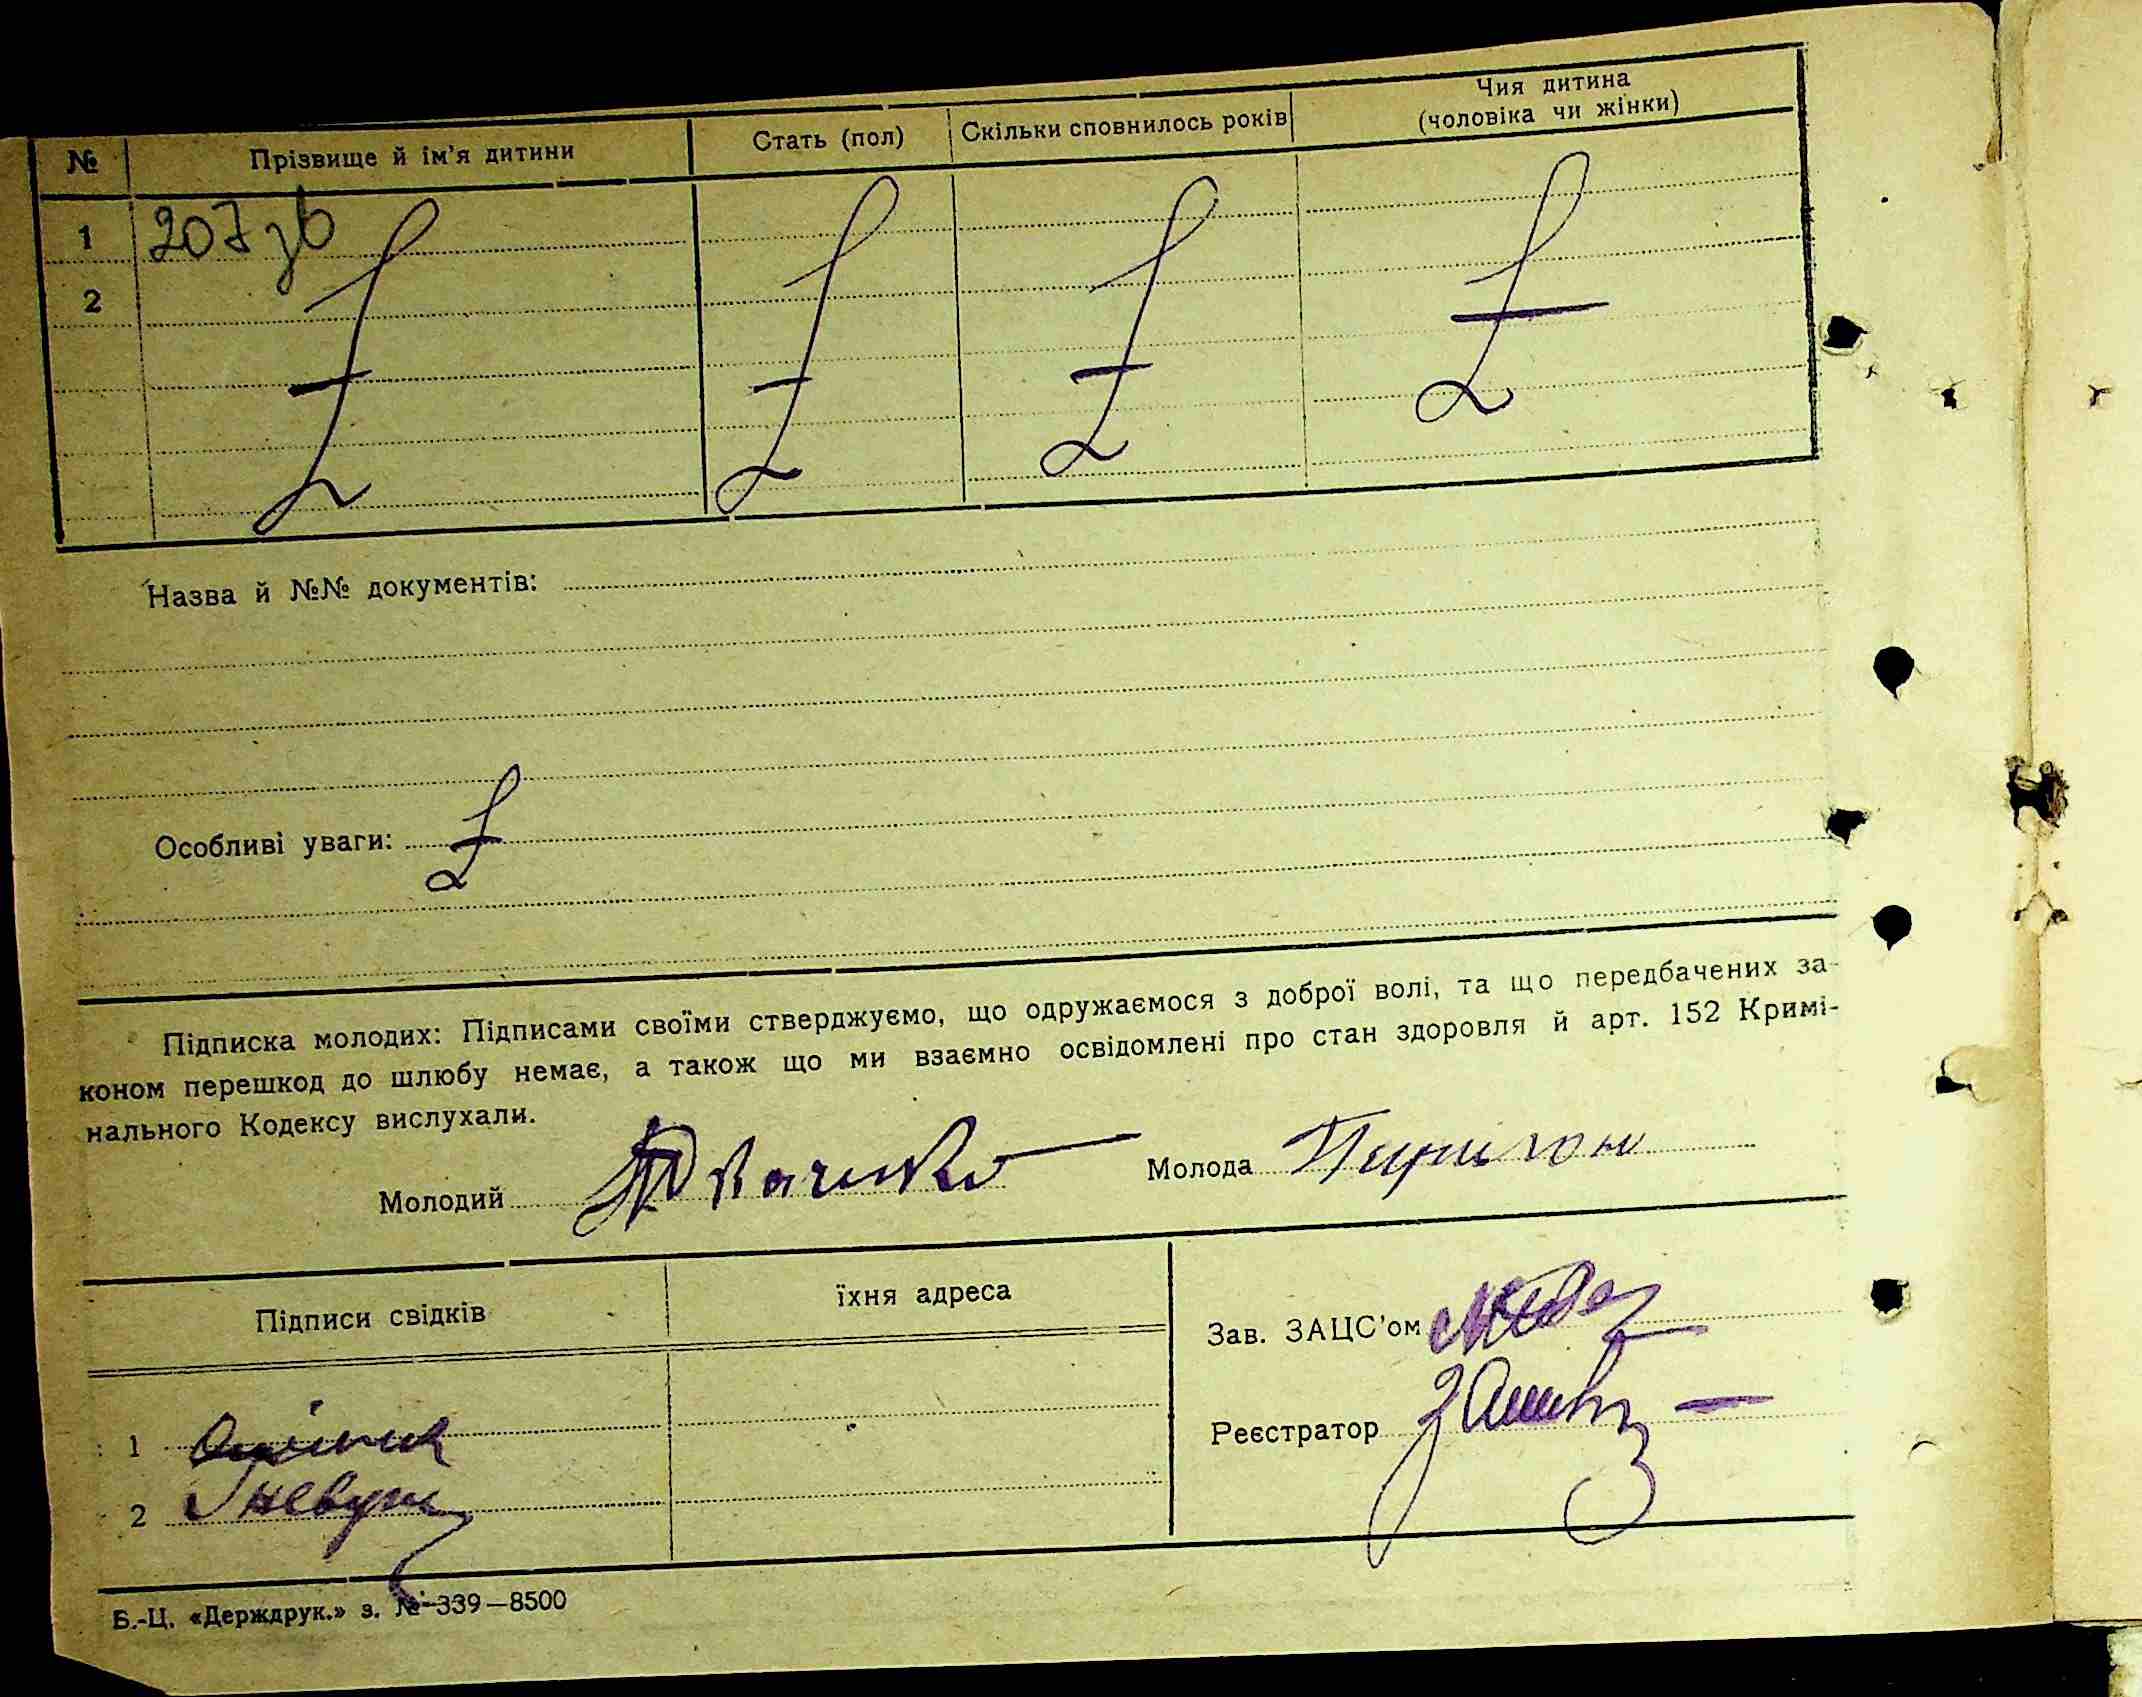 № Прізвище й ім'я дитини Стать (пол) Скільки сповнилось років Чия дитина
(чоловіка чи жінки)
1 207 зв
2
Назва й №№ документів:
Особливі уваги:
Підписка молодих: Підписами своїми стверджуємо, що одружаємося з доброї волі, та що передбачених за-
коном перешкод до шлюбу немає, а також що ми взаємно освідомлені про стан здоровля й арт. 152 Кримі-
нального Кодексу вислухали.
Молодий Молода
Підписи свідків їхня адреса
Зав. ЗАЦС'ом
Реєстратор
1
2
Б.-Ц. «Держдрук.» з. № 339—8500